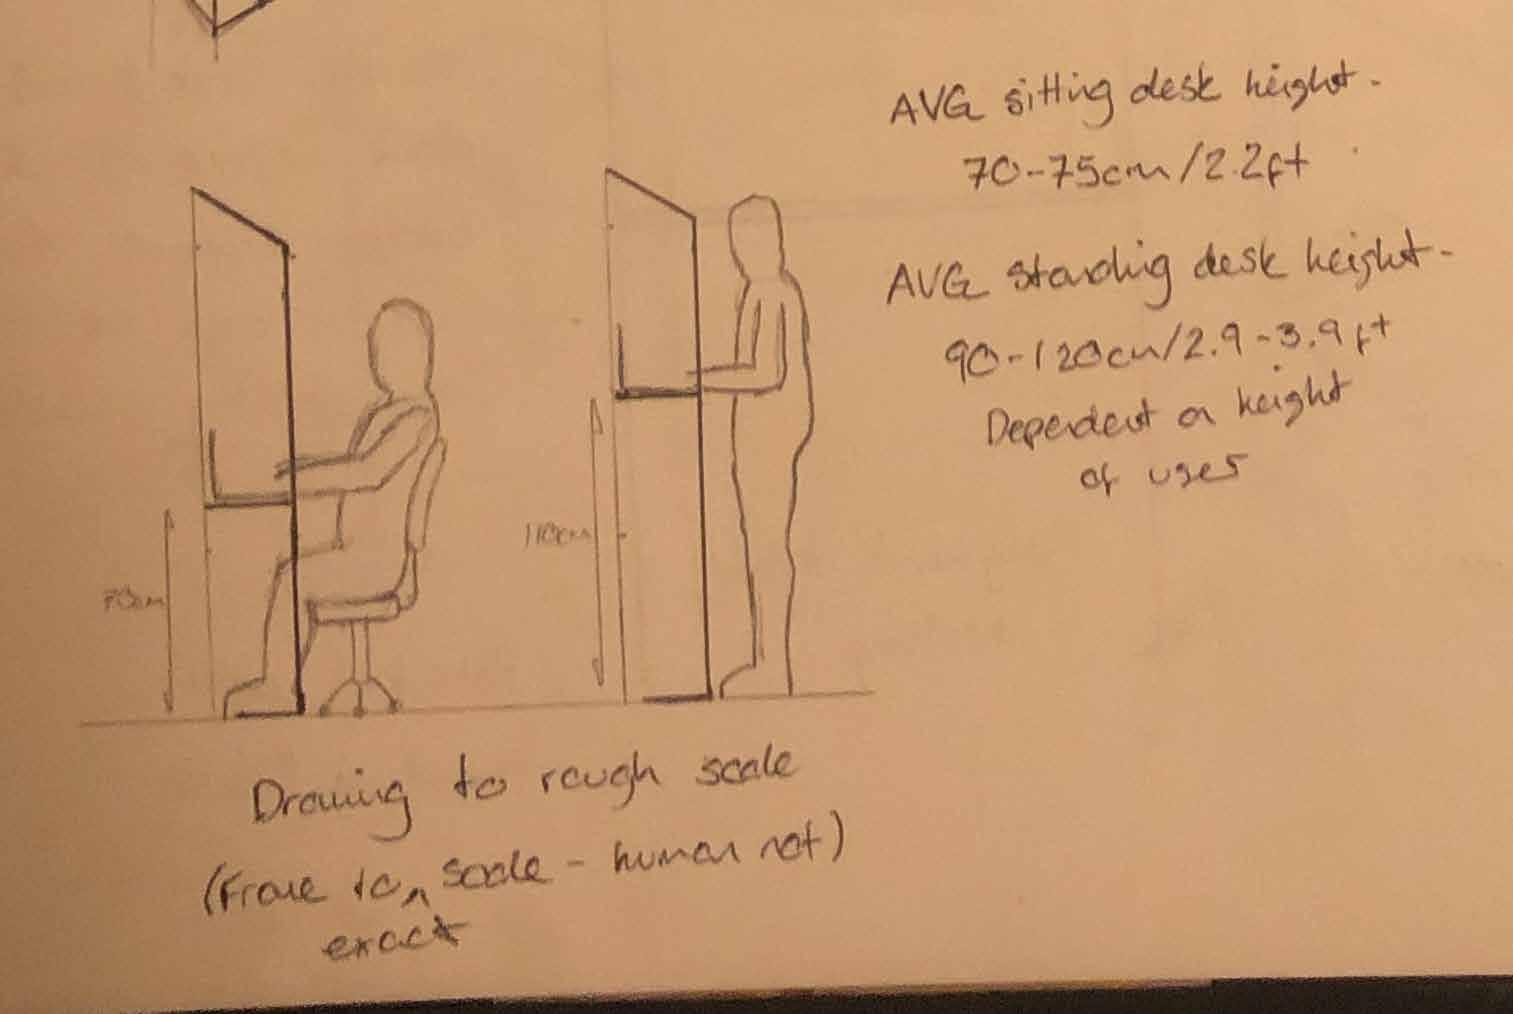 AVG sitting desk height.
70-75cm/2.2ft
AVG standing desk height.
90-120cm/2.9-3.9ft
Dependent on height
of user
70cm
110cm
Drawing to rough scale
(Frame to ^ scale - human not)
exact